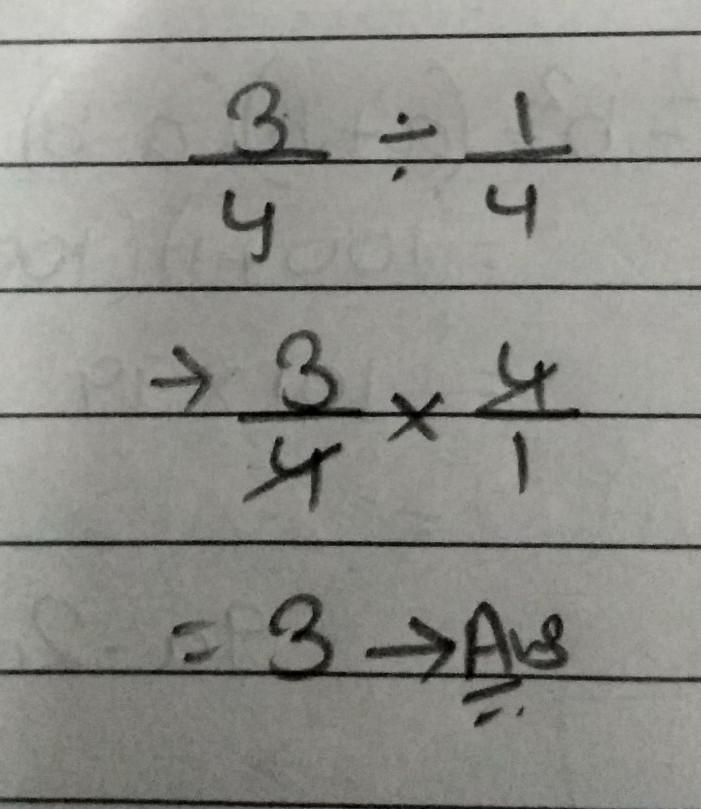 3/4 ÷ 1/4
→ 3/4 × 4/1
= 3 → Ans